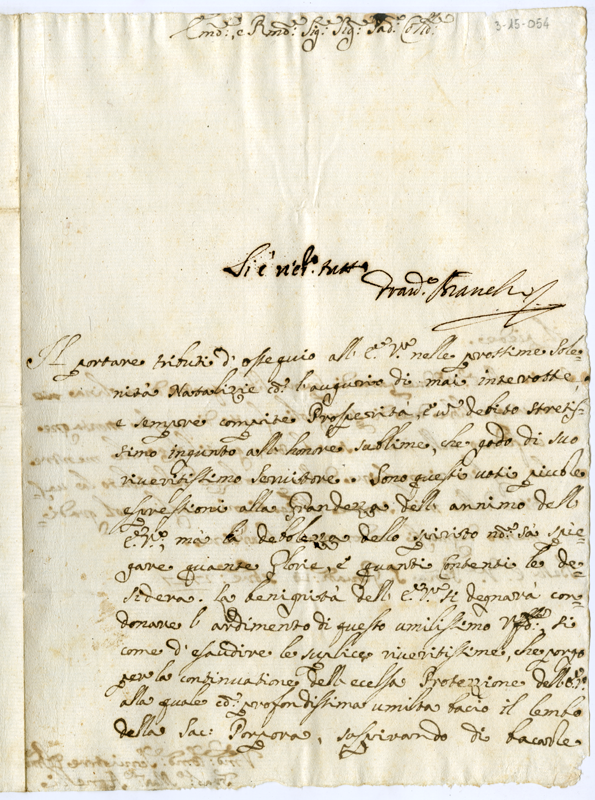 3-15-054
Emo:, e Rmo: Sig: Sig: Pad: Coll:
Si è tutto
Fran.
Il portare tributi d'ossequio all' E:V: nelle prossime Sole-
nità Natalizie co: l'augurio di mai interotte,
e sempre compite Prosperità, è debito stretis-
simo ingiunto all' honore sublime, che godo di suo
riveritissimo Servitore. Sono questi voti piccole
espressioni alla Grandezza dell' animo dell'
E:V:, mà la debolezza dello spirito no: sà spie-
gare quante Glorie, e quanti Contenti le de-
sidera. la benignità dell' E:V: si degnarà con-
donare l'ardimento di questo umilissimo Uff: si
come d'esaudire le suplice riveritissime, che porgo
per la continuatione dell' ecelsa Protezzione dell' E:V:
alla quale co: profondissima umiltà bacio il lembo
della Sac: Porpora, sospirando di bacarle